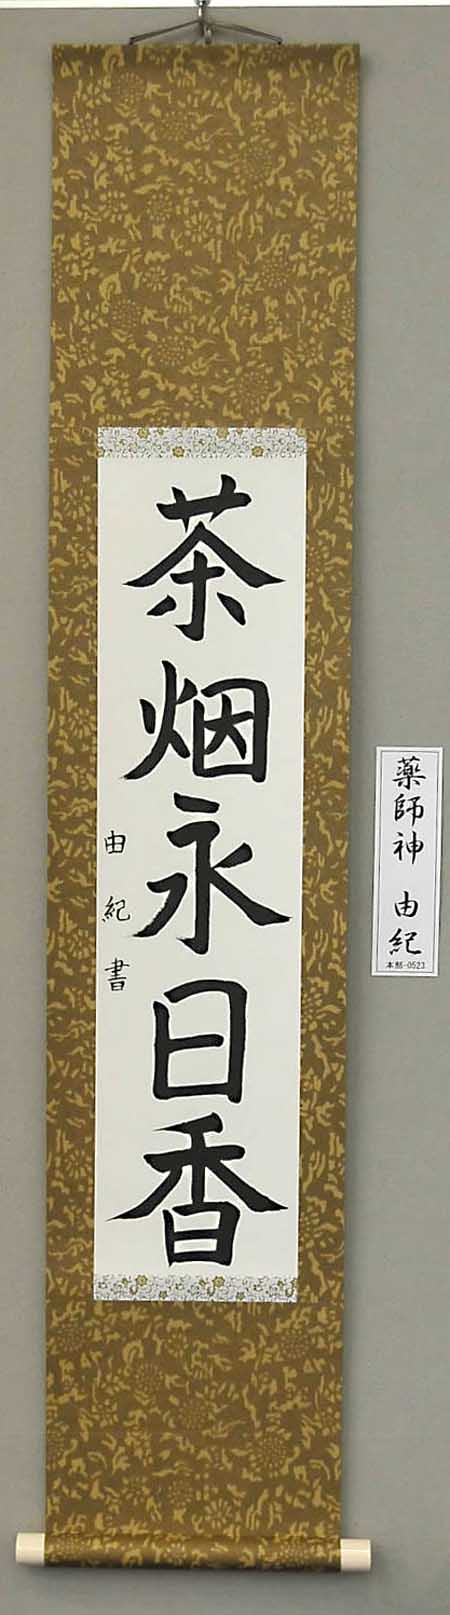 茶烟永日香
由紀書
薬師神 由紀
本部-0523